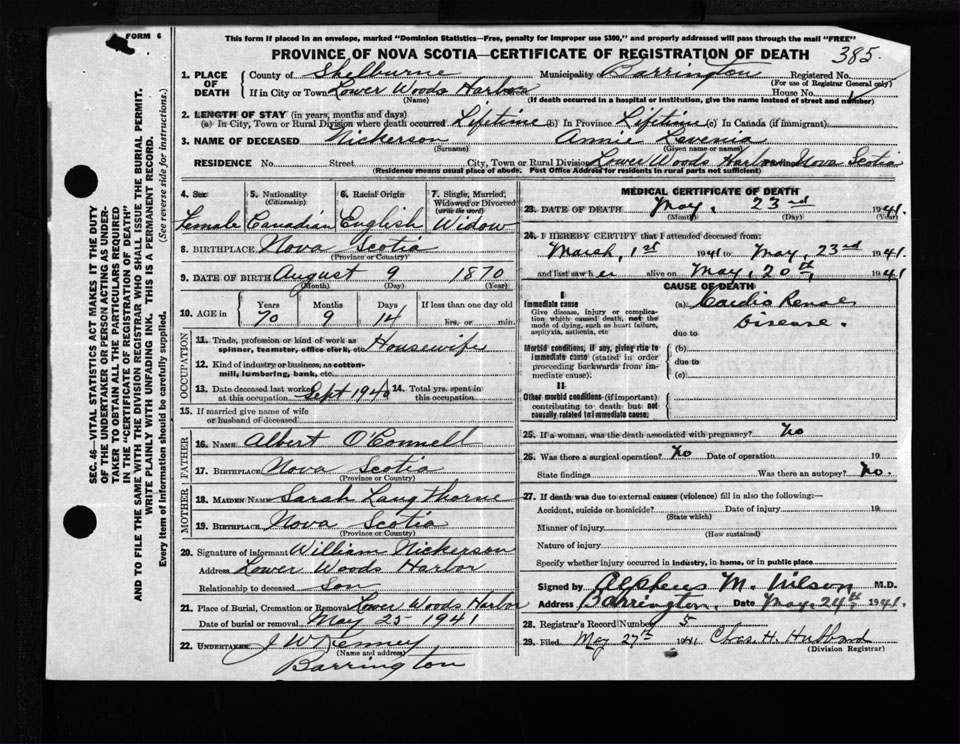 FORM 6
This form if placed in an envelope, marked "Dominion Statistics—Free, penalty for improper use $300," and properly addressed will pass through the mail "FREE"
PROVINCE OF NOVA SCOTIA—CERTIFICATE OF REGISTRATION OF DEATH
385
1. PLACE OF DEATH
County of Shelburne Municipality of Barrington Registered No.
(For use of Registrar General only)
If in City or Town Lower Woods Harbor House No.
(Name) (If death occurred in a hospital or institution, give the name instead of street and number)
2. LENGTH OF STAY (in years, months and days)
(a) In City, Town or Rural Division where death occurred Lifetime (b) In Province Lifetime (c) In Canada (if immigrant)
3. NAME OF DECEASED Nickerson Annie Levenia
(Surname) (Given name or names)
RESIDENCE No. Street City, Town or Rural Division Lower Woods Harbor Nova Scotia
(Residence means usual place of abode. Post Office Address for residents in rural parts not sufficient)
4. Sex 5. Nationality (Citizenship) 6. Racial Origin 7. Single, Married, Widowed or Divorced (write the word)
Female Canadian English Widow
8. BIRTHPLACE Nova Scotia
(Province or Country)
9. DATE OF BIRTH August 9 1870
(Month) (Day) (Year)
10. AGE in Years Months Days If less than one day old
70 9 14 hrs. or min.
OCCUPATION
11. Trade, profession or kind of work as spinner, teamster, office clerk, etc Housewife
12. Kind of industry or business, as cotton-mill, lumbering, bank, etc.
13. Date deceased last worked at this occupation Sept 1940 14. Total yrs. spent in this occupation
15. If married give name of wife or husband of deceased
FATHER
16. NAME Albert O'Connell
17. BIRTHPLACE Nova Scotia
(Province or Country)
MOTHER
18. MAIDEN NAME Sarah Langthorne
19. BIRTHPLACE Nova Scotia
(Province or Country)
20. Signature of informant William Nickerson
Address Lower Woods Harbor
Relationship to deceased Son
21. Place of Burial, Cremation or Removal Lower Woods Harbor
Date of burial or removal May 25 1941
22. UNDERTAKER J W Kenney
(Name and address)
Barrington
MEDICAL CERTIFICATE OF DEATH
23. DATE OF DEATH May, 23rd 1941.
(Month) (Day) (Year)
24. I HEREBY CERTIFY that I attended deceased from:
March, 1st 1941 to May, 23rd 1941
and last saw her alive on May, 20th, 1941
CAUSE OF DEATH
I
Immediate cause (a) Cardio Renal
Give disease, injury or complication which caused death, not the mode of dying, such as heart failure, asphyxia, asthenia, etc
Disease.
due to
Morbid conditions, if any, giving rise to immediate cause (stated in order proceeding backwards from immediate cause).
(b)
due to
(c)
II
Other morbid conditions (if important) contributing to death but not causally related to immediate cause
25. If a woman, was the death associated with pregnancy? No
26. Was there a surgical operation? No Date of operation 19
State findings Was there an autopsy? No.
27. If death was due to external causes (violence) fill in also the following:—
Accident, suicide or homicide? Date of injury 19
(State which)
Manner of injury
(How sustained)
Nature of injury
Specify whether injury occurred in industry, in home, or in public place
Signed by Alpheus M. Wilson M.D.
Address Barrington, Date May 24th, 1941.
28. Registrar's Record Number 5
29. Filed May 27th 1941 Chas. H. Hubbard
(Division Registrar)
SEC. 46—VITAL STATISTICS ACT MAKES IT THE DUTY
OF THE UNDERTAKER OR PERSON ACTING AS UNDER-
TAKER TO OBTAIN ALL THE PARTICULARS REQUIRED
IN THE "CERTIFICATE OF REGISTRATION OF DEATH"
AND TO FILE THE SAME WITH THE DIVISION REGISTRAR WHO SHALL ISSUE THE BURIAL PERMIT.
WRITE PLAINLY WITH UNFADING INK. THIS IS A PERMANENT RECORD.
Every item of information should be carefully supplied. (See reverse side for instructions.)